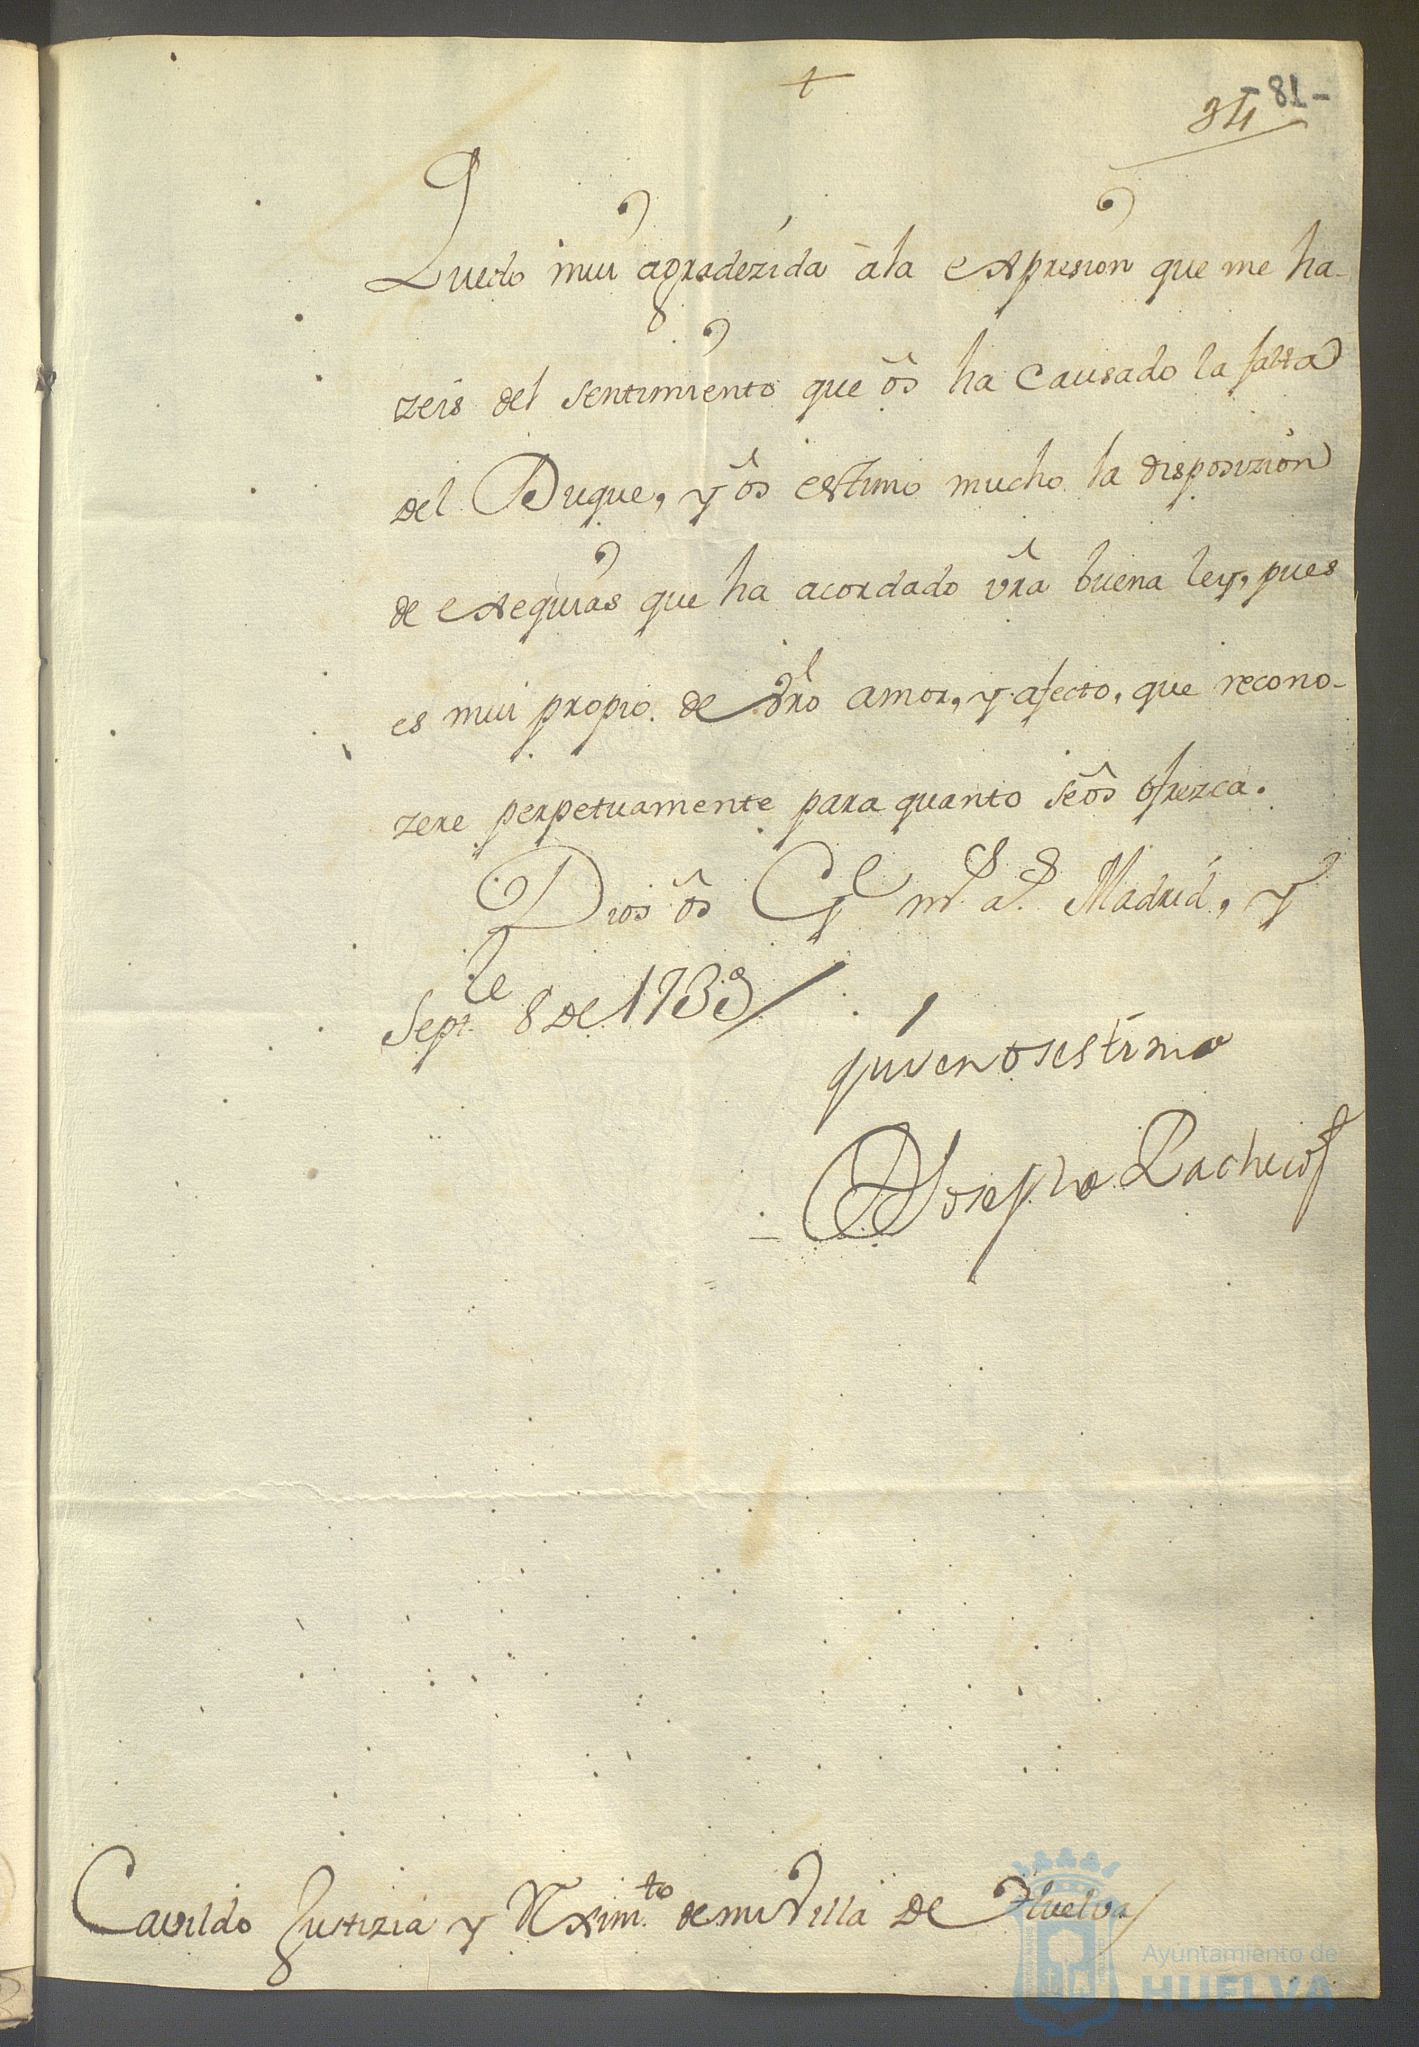 +
34 -81-
Quedo mui agradezida à la expresion que me ha-
zeis del sentimiento que ôs ha causado la falta
del Duque, y ôs estimo mucho la disposizion
de exequias que ha acordado vrã buena ley, pues
es mui propio de vrõ amor, y afecto, que recono-
zere perpetuamente para quanto se ôs ofrezca.
Dios ôs Ge ms. as. Madrid, y
Septre 8 de 1733
quien os estima
Josepha Pacheco
Cavildo Justizia y Reximto de mi Villa de Huelva
Ayuntamiento de
HUELVA